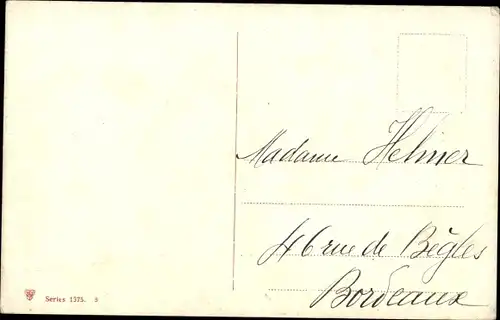 Madame Helmer
46 rue de Bègles
Bordeaux
Series 1375.